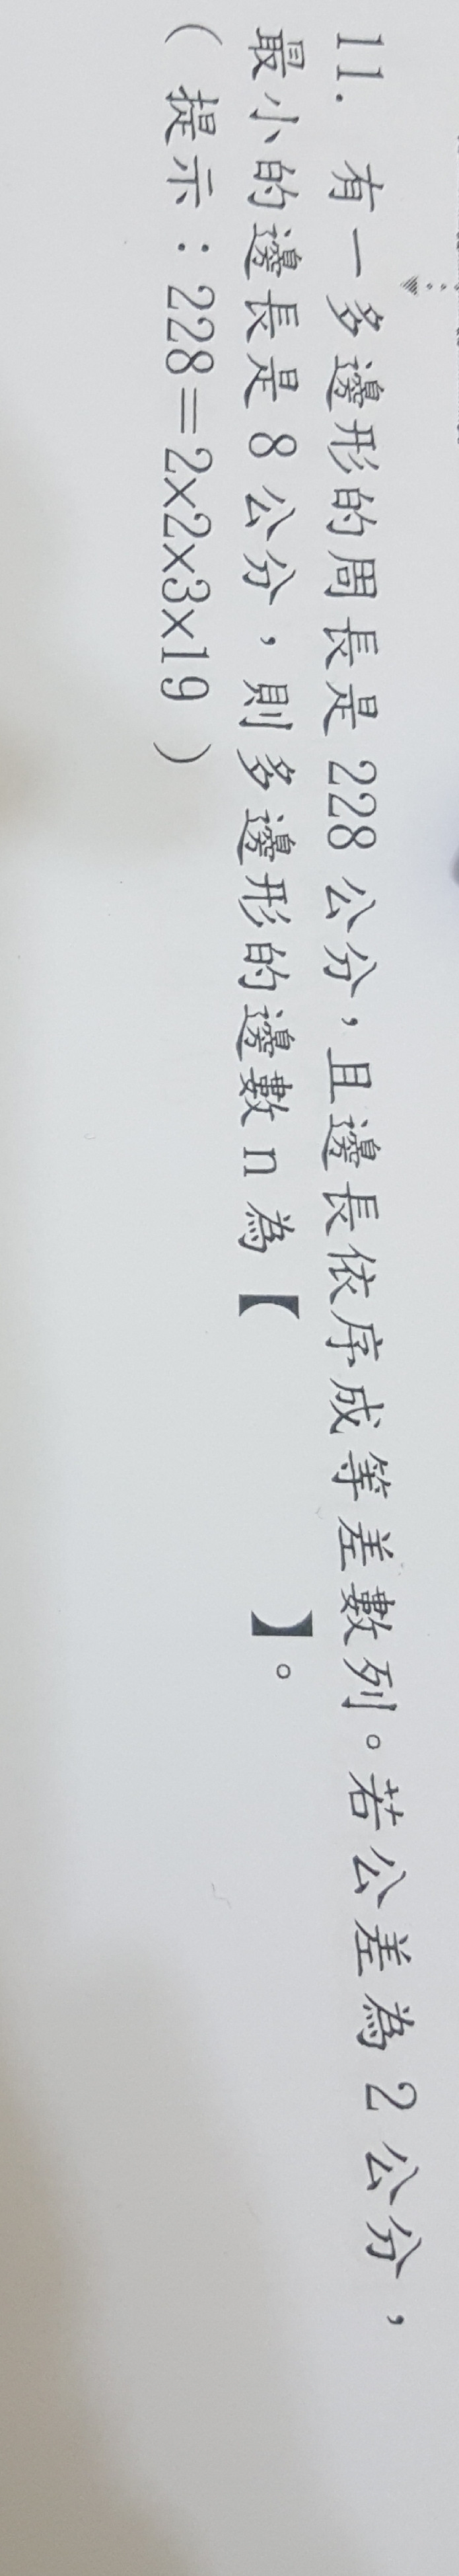 11. 有一多邊形的周長是228公分，且邊長依序成等差數列。若公差為2公分，
最小的邊長是8公分，則多邊形的邊數n為【　　　】。
（提示：228=2×2×3×19）